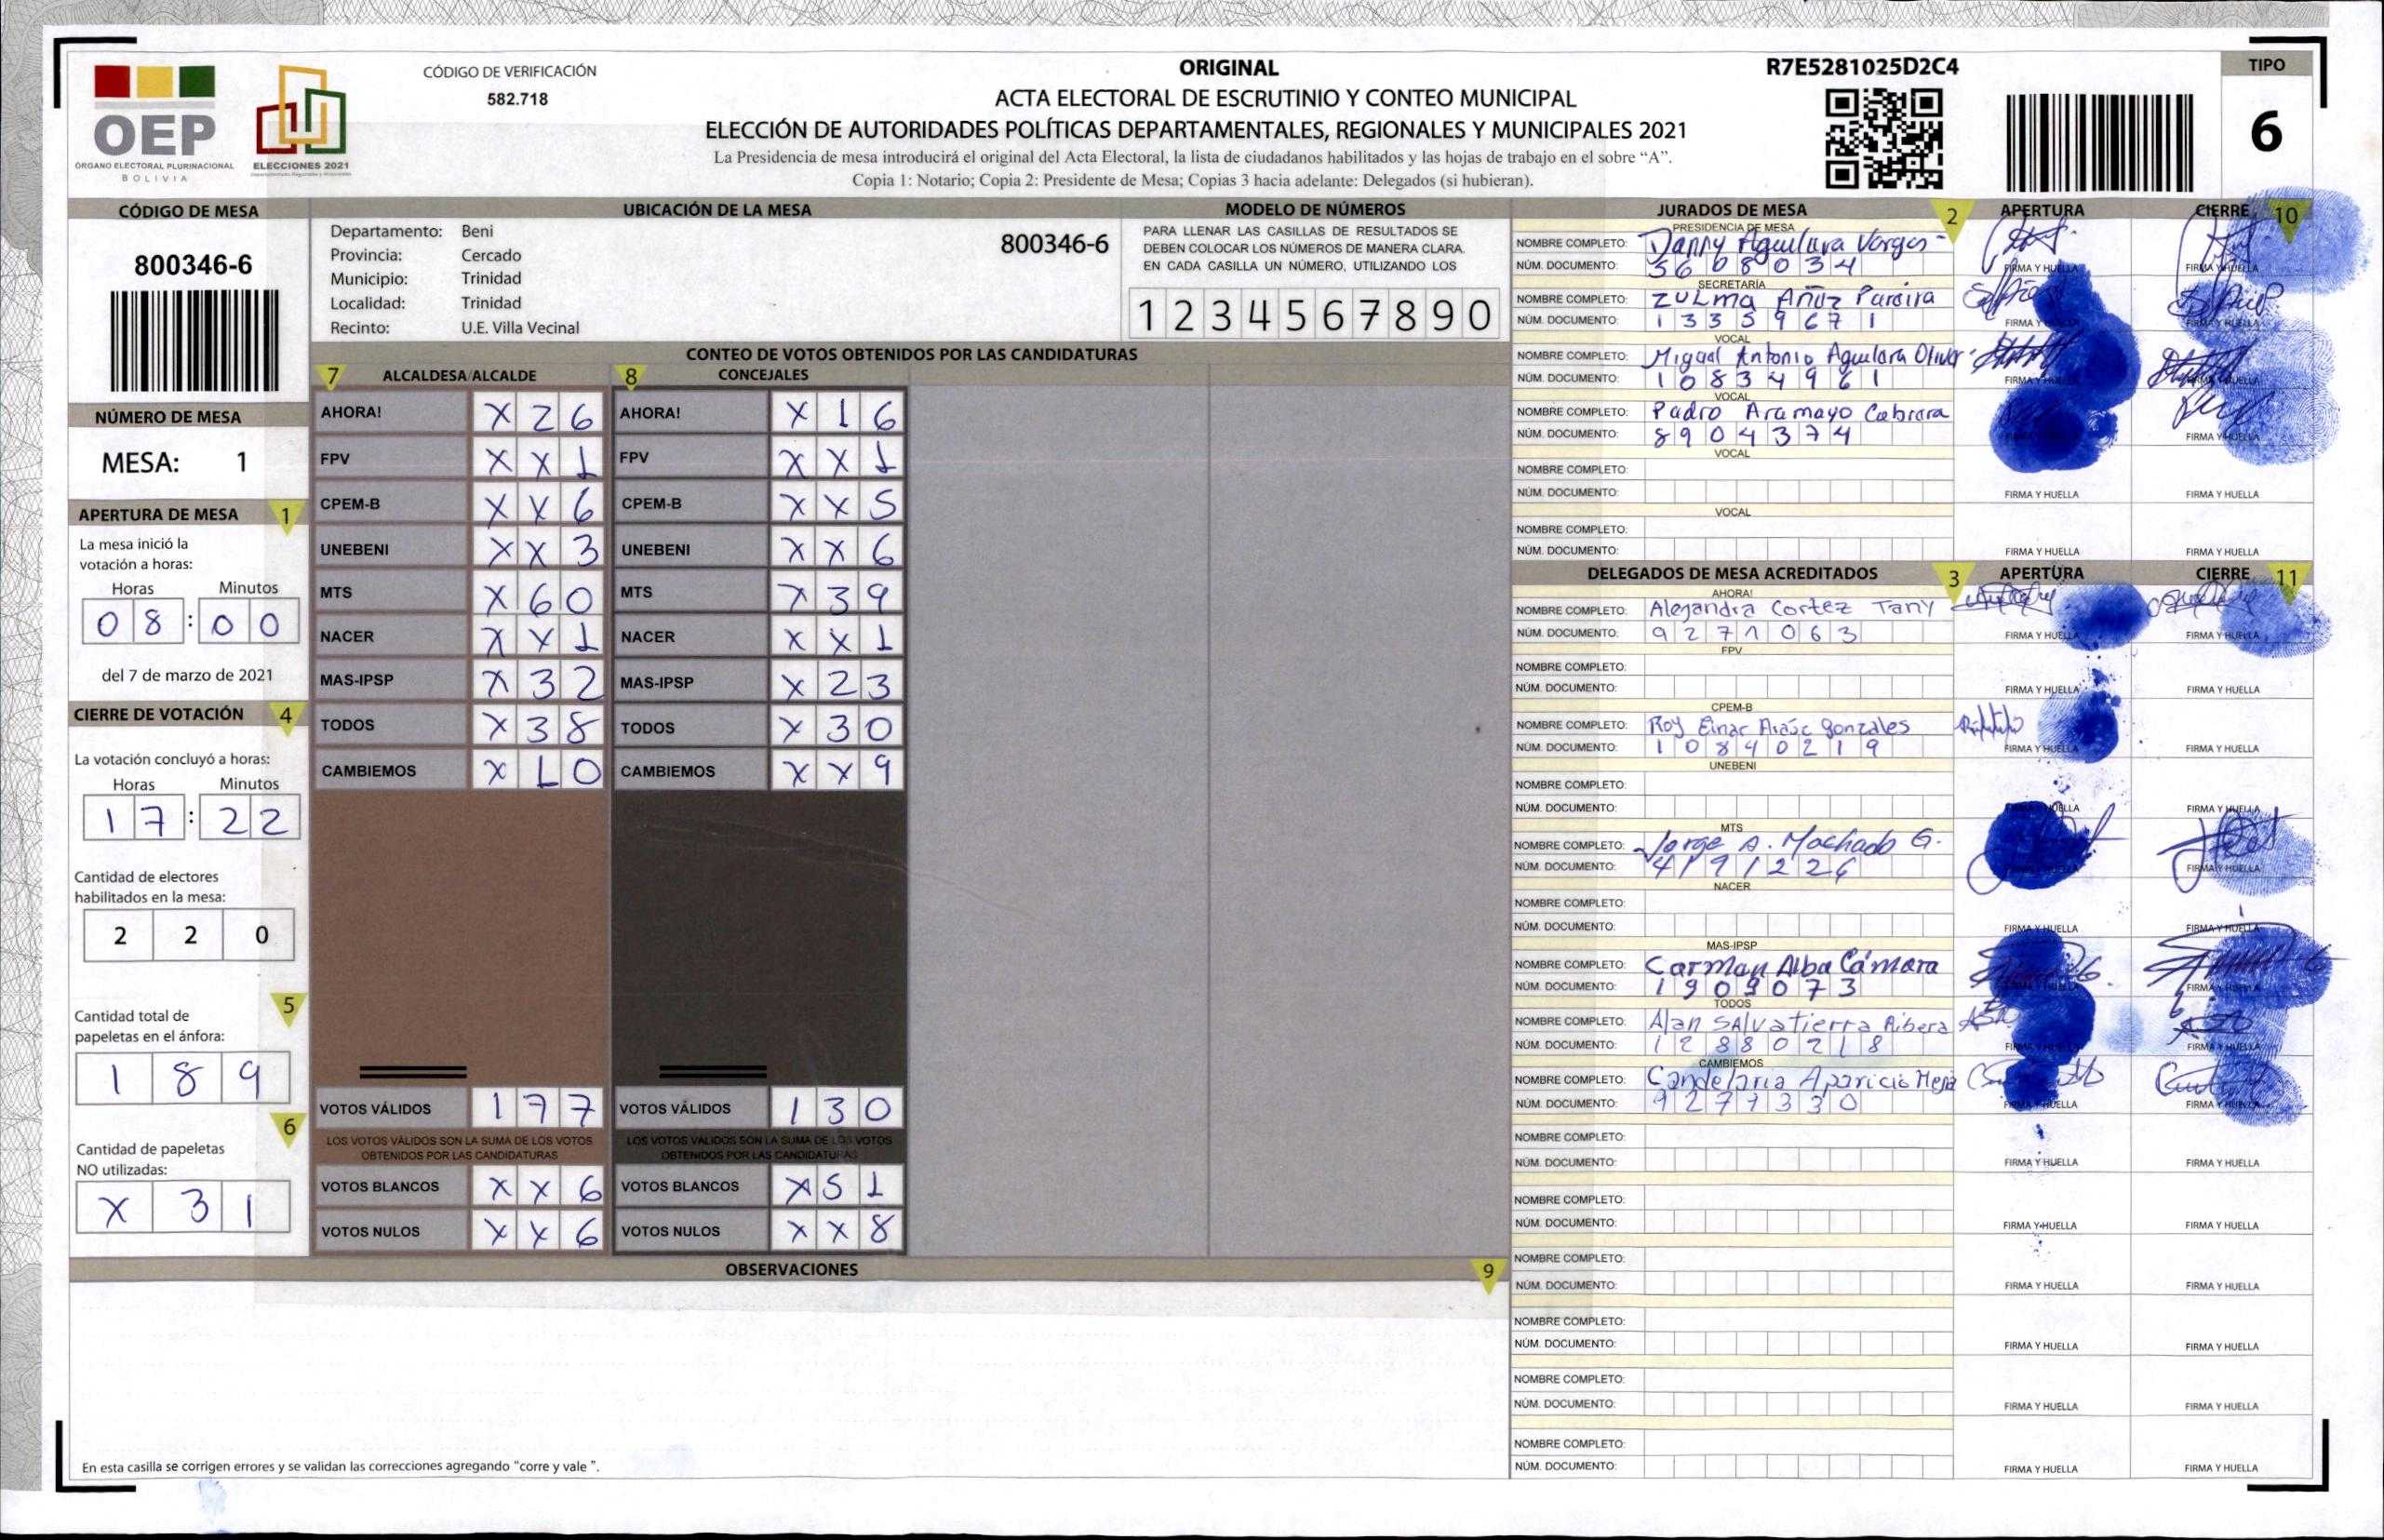 OEP
ÓRGANO ELECTORAL PLURINACIONAL
BOLIVIA
ELECCIONES 2021
CÓDIGO DE VERIFICACIÓN
582.718
ORIGINAL
ACTA ELECTORAL DE ESCRUTINIO Y CONTEO MUNICIPAL
ELECCIÓN DE AUTORIDADES POLÍTICAS DEPARTAMENTALES, REGIONALES Y MUNICIPALES 2021
La Presidencia de mesa introducirá el original del Acta Electoral, la lista de ciudadanos habilitados y las hojas de trabajo en el sobre “A”.
Copia 1: Notario; Copia 2: Presidente de Mesa; Copias 3 hacia adelante: Delegados (si hubieran).
R7E5281025D2C4
TIPO
6
CÓDIGO DE MESA
800346-6
NÚMERO DE MESA
MESA: 1
APERTURA DE MESA 1
La mesa inició la
votación a horas:
Horas Minutos
0 8 : 0 0
del 7 de marzo de 2021
CIERRE DE VOTACIÓN 4
La votación concluyó a horas:
Horas Minutos
1 7 : 2 2
Cantidad de electores
habilitados en la mesa:
2 2 0
5
Cantidad total de
papeletas en el ánfora:
1 8 9
6
Cantidad de papeletas
NO utilizadas:
X 3 1
UBICACIÓN DE LA MESA
Departamento: Beni
Provincia: Cercado
Municipio: Trinidad
Localidad: Trinidad
Recinto: U.E. Villa Vecinal
800346-6
MODELO DE NÚMEROS
PARA LLENAR LAS CASILLAS DE RESULTADOS SE
DEBEN COLOCAR LOS NÚMEROS DE MANERA CLARA.
EN CADA CASILLA UN NÚMERO, UTILIZANDO LOS
1 2 3 4 5 6 7 8 9 0
CONTEO DE VOTOS OBTENIDOS POR LAS CANDIDATURAS
7 ALCALDESA/ALCALDE 8 CONCEJALES
AHORA! X 2 6 AHORA! X 1 6
FPV X X 1 FPV X X 1
CPEM-B X X 6 CPEM-B X X 5
UNEBENI X X 3 UNEBENI X X 6
MTS X 6 0 MTS X 3 9
NACER X X 1 NACER X X 1
MAS-IPSP X 3 2 MAS-IPSP X 2 3
TODOS X 3 8 TODOS X 3 0
CAMBIEMOS X 1 0 CAMBIEMOS X X 9
VOTOS VÁLIDOS 1 7 7 VOTOS VÁLIDOS 1 3 0
LOS VOTOS VÁLIDOS SON LA SUMA DE LOS VOTOS LOS VOTOS VÁLIDOS SON LA SUMA DE LOS VOTOS
OBTENIDOS POR LAS CANDIDATURAS OBTENIDOS POR LAS CANDIDATURAS
VOTOS BLANCOS X X 6 VOTOS BLANCOS X 5 1
VOTOS NULOS X X 6 VOTOS NULOS X X 8
OBSERVACIONES 9
En esta casilla se corrigen errores y se validan las correcciones agregando "corre y vale ".
JURADOS DE MESA 2 APERTURA CIERRE 10
PRESIDENCIA DE MESA
NOMBRE COMPLETO: Danny Aguilera Vargas
NÚM. DOCUMENTO: 5 6 0 8 0 3 4 FIRMA Y HUELLA FIRMA Y HUELLA
SECRETARÍA
NOMBRE COMPLETO: ZULMA Añez Pareira
NÚM. DOCUMENTO: 1 3 3 5 9 6 7 1 FIRMA Y FIRMA Y HUELLA
VOCAL
NOMBRE COMPLETO: Miguel Antonio Aguilera Oliver
NÚM. DOCUMENTO: 1 0 8 3 4 9 6 1 FIRMA Y HUELLA FIRMA Y HUELLA
VOCAL
NOMBRE COMPLETO: Pedro Aramayo Cabrera
NÚM. DOCUMENTO: 8 9 0 4 3 7 4 FIRMA Y HUELLA FIRMA Y HUELLA
VOCAL
NOMBRE COMPLETO:
NÚM. DOCUMENTO: FIRMA Y HUELLA FIRMA Y HUELLA
VOCAL
NOMBRE COMPLETO:
NÚM. DOCUMENTO: FIRMA Y HUELLA FIRMA Y HUELLA
DELEGADOS DE MESA ACREDITADOS 3 APERTURA CIERRE 11
AHORA!
NOMBRE COMPLETO: Alejandra Cortez Tany
NÚM. DOCUMENTO: 9 2 7 1 0 6 3 FIRMA Y HUELLA FIRMA Y HUELLA
FPV
NOMBRE COMPLETO:
NÚM. DOCUMENTO: FIRMA Y HUELLA FIRMA Y HUELLA
CPEM-B
NOMBRE COMPLETO: Roy Einar Gonzales
NÚM. DOCUMENTO: 1 0 8 4 0 2 1 9 FIRMA Y HUELLA FIRMA Y HUELLA
UNEBENI
NOMBRE COMPLETO:
NÚM. DOCUMENTO: FIRMA Y HUELLA FIRMA Y HUELLA
MTS
NOMBRE COMPLETO: Jorge A. Machado G.
NÚM. DOCUMENTO: 4 1 9 1 2 2 6 FIRMA Y HUELLA
NACER
NOMBRE COMPLETO:
NÚM. DOCUMENTO: FIRMA Y HUELLA FIRMA Y HUELLA
MAS-IPSP
NOMBRE COMPLETO: Carman Alba Cámara
NÚM. DOCUMENTO: 1 9 0 9 0 7 3 FIRMA Y HUELLA
TODOS
NOMBRE COMPLETO: Alan SAlvatierra Ribera
NÚM. DOCUMENTO: 1 2 8 8 0 2 1 8 FIRMA Y HUELLA
CAMBIEMOS
NOMBRE COMPLETO: Candelaria Aparicio Mejia
NÚM. DOCUMENTO: 9 2 7 1 3 3 0 FIRMA Y HUELLA FIRMA Y HUELLA
NOMBRE COMPLETO:
NÚM. DOCUMENTO: FIRMA Y HUELLA FIRMA Y HUELLA
NOMBRE COMPLETO:
NÚM. DOCUMENTO: FIRMA Y HUELLA FIRMA Y HUELLA
NOMBRE COMPLETO:
NÚM. DOCUMENTO: FIRMA Y HUELLA FIRMA Y HUELLA
NOMBRE COMPLETO:
NÚM. DOCUMENTO: FIRMA Y HUELLA FIRMA Y HUELLA
NOMBRE COMPLETO:
NÚM. DOCUMENTO: FIRMA Y HUELLA FIRMA Y HUELLA
NOMBRE COMPLETO:
NÚM. DOCUMENTO: FIRMA Y HUELLA FIRMA Y HUELLA